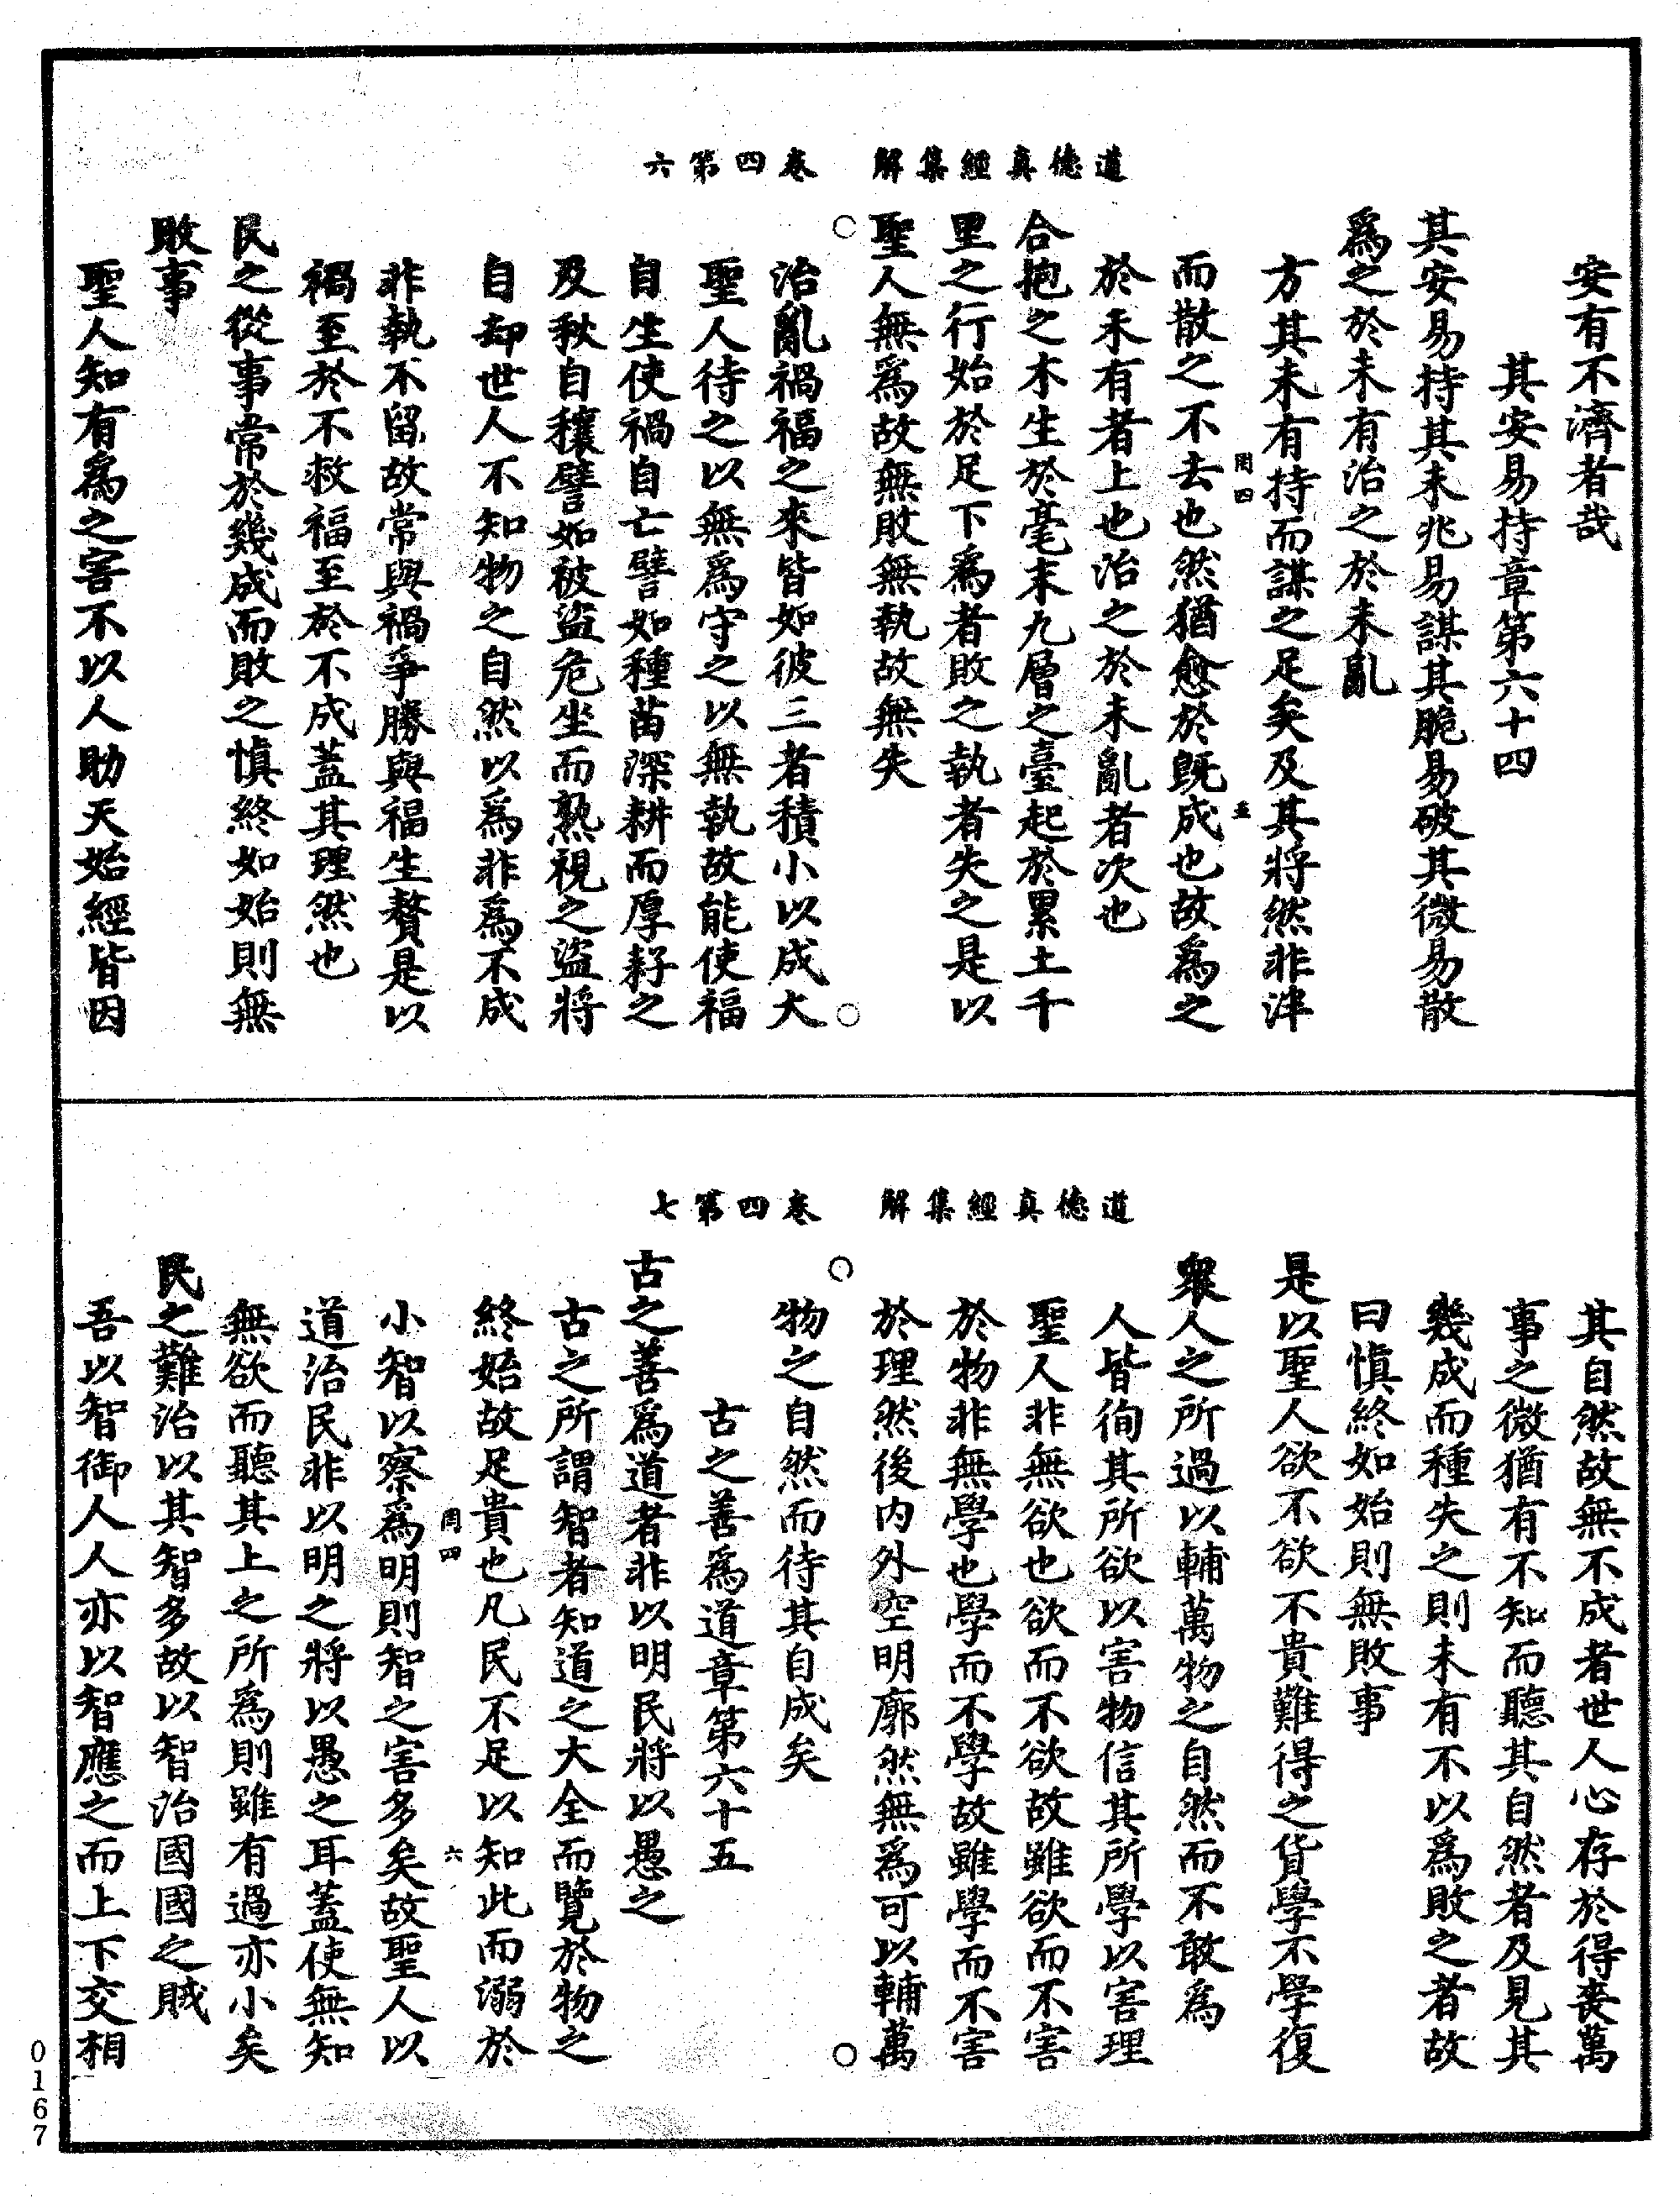 道德真經集解　卷四第六
安有不濟者哉
其安易持章第六十四
其安易持其未兆易謀其脆易破其微易散
為之於未有治之於未亂
方其未有持而謀之足矣及其將然非泮
周四
五
而散之不去也然猶愈於既成也故為之
於未有者上也治之於未亂者次也
合抱之木生於毫末九層之臺起於累土千
里之行始於足下為者敗之執者失之是以
聖人無為故無敗無執故無失
治亂禍福之來皆如彼三者積小以成大
聖人待之以無為守之以無執故能使福
自生使禍自亡譬如種苗深耕而厚耔之
及秋自穰譬如被盜危坐而熟視之盜將
自却世人不知物之自然以為非為不成
非執不留故常與禍爭勝與福生贅是以
禍至於不救福至於不成蓋其理然也
民之從事常於幾成而敗之慎終如始則無
敗事
聖人知有為之害不以人助天始經皆因
道德真經集解　卷四第七
其自然故無不成者世人心存於得喪萬
事之微猶有不知而聽其自然者及見其
幾成而種失之則未有不以為敗之者故
曰慎終如始則無敗事
是以聖人欲不欲不貴難得之貨學不學復
衆人之所過以輔萬物之自然而不敢為
人皆徇其所欲以害物信其所學以害理
聖人非無欲也欲而不欲故雖欲而不害
於物非無學也學而不學故雖學而不害
於理然後內外空明廓然無為可以輔萬
物之自然而待其自成矣
古之善為道章第六十五
古之善為道者非以明民將以愚之
古之所謂智者知道之大全而覽於物之
終始故足貴也凡民不足以知此而溺於
周四
六
小智以察為明則智之害多矣故聖人以
道治民非以明之將以愚之耳蓋使無知
無欲而聽其上之所為則雖有過亦小矣
民之難治以其智多故以智治國國之賊
吾以智御人人亦以智應之而上下交相
0167